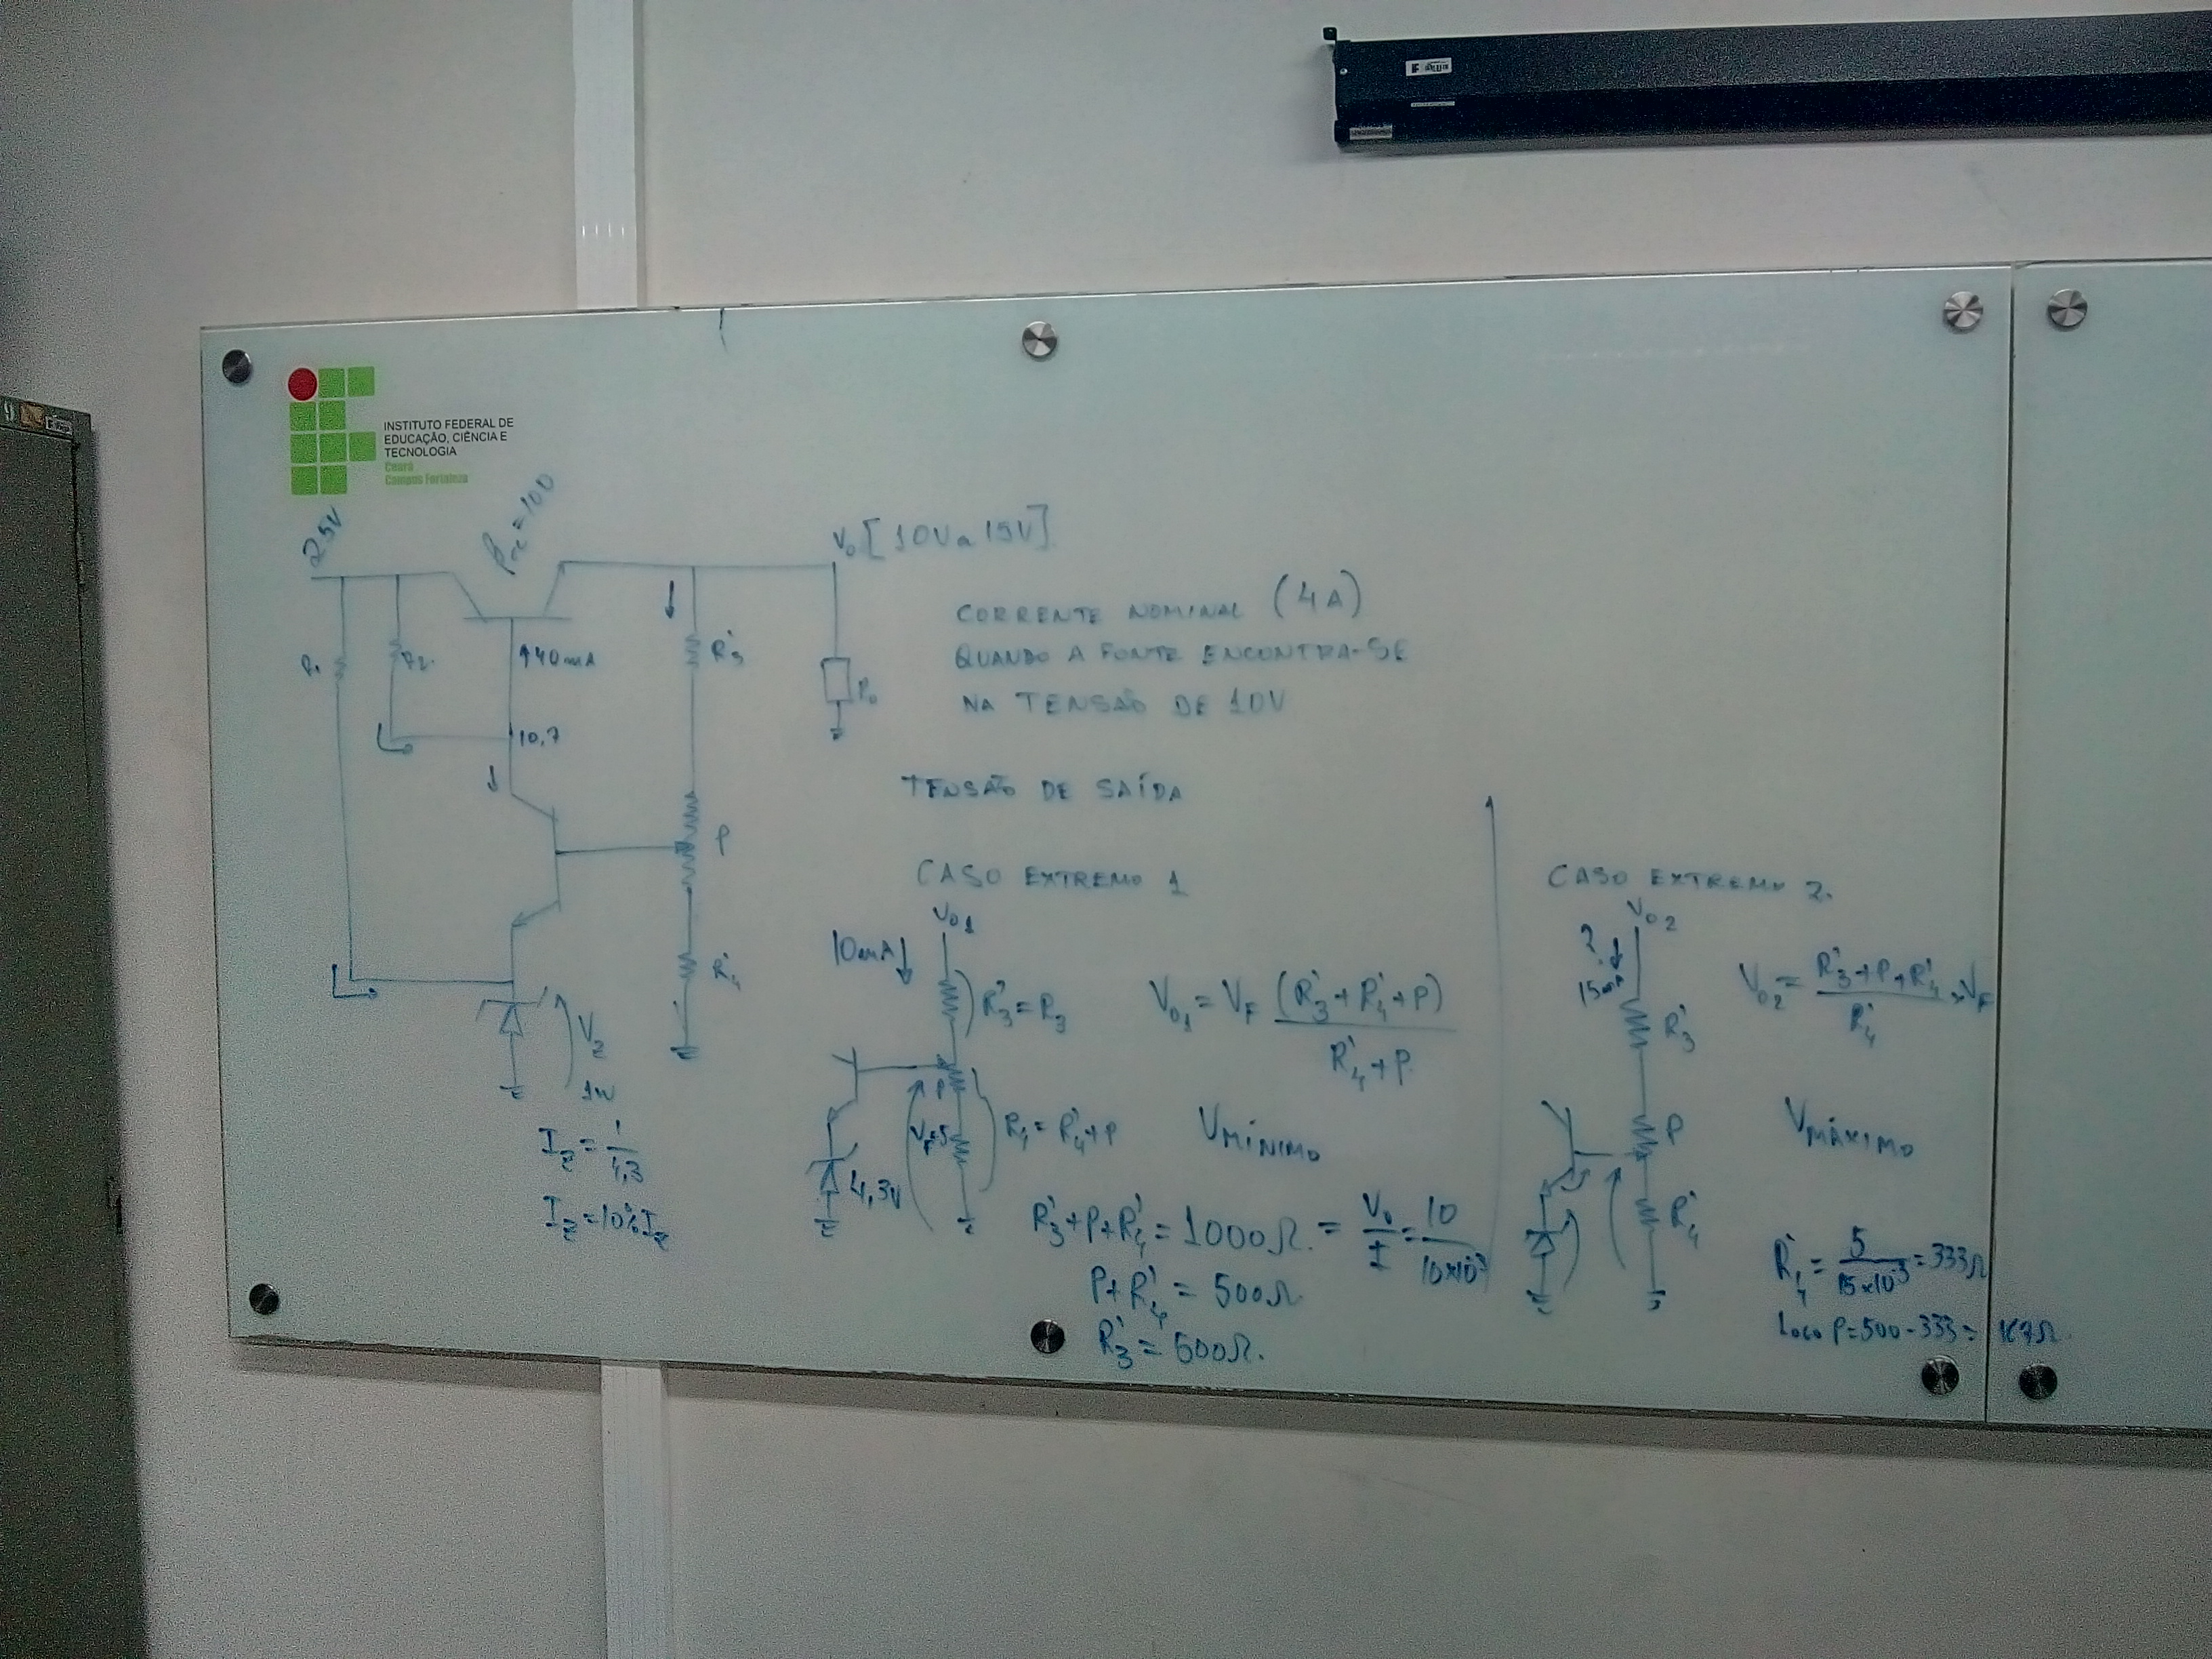 INSTITUTO FEDERAL DE
EDUCAÇÃO, CIÊNCIA E
TECNOLOGIA
Ceará
Campus Fortaleza
25V
=100
V₀ [10V a 15V]
R₁
R₂
↑40mA
R'₃
10,7
P
R'₄
R₀
CORRENTE NOMINAL (4A)
QUANDO A FONTE ENCONTRA-SE
NA TENSÃO DE 10V
TENSÃO DE SAÍDA
Vz
1W
Iz = 1/4,3
Iz = 10% Iz
CASO EXTREMO 1
V₀₁
10mA ↓
R'₃ = R₃
P
VF=5
R₄ = R'₄+P
4,3V
V₀₁ = VF (R'₃+R'₄+P) / R'₄+P
VMÍNIMO
R'₃+P+R'₄ = 1000Ω = V₀/I = 10/10x10⁻³
P+R'₄ = 500Ω
R'₃ = 500Ω.
CASO EXTREMO 2.
V₀₂
? ↓
15mA
R'₃
P
R'₄
V₀₂ = R'₃+P+R'₄ / R'₄ x VF
VMÁXIMO
R'₄ = 5/15x10⁻³ = 333Ω
LOGO P=500-333= 167Ω